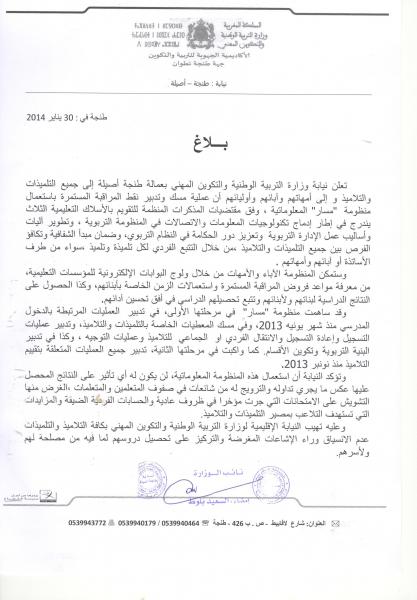 المملكة المغربية
وزارة التربية الوطنية
والتكوين المهني
الأكاديمية الجهوية للتربية والتكوين
جهة طنجة تطوان
نيابة : طنجة – أصيلة
طنجة في : 30 يناير 2014
بـــلاغ
تعلن نيابة وزارة التربية الوطنية والتكوين المهني بعمالة طنجة أصيلة إلى جميع التلميذات
والتلاميذ و إلى أمهاتهم وآبائهم وأوليائهم أن عملية مسك وتدبير نقط المراقبة المستمرة باستعمال
منظومة "مسار" المعلوماتية ، وفق مقتضيات المذكرات المنظمة للتقويم بالأسلاك التعليمية الثلاث
يندرج في إطار إدماج تكنولوجيات المعلومات والاتصالات في المنظومة التربوية ، وتطوير آليات
وأساليب عمل الإدارة التربوية وتعزيز دور الحكامة في النظام التربوي، وضمان مبدأ الشفافية وتكافؤ
الفرص بين جميع التلميذات والتلاميذ ،من خلال التتبع الفردي لكل تلميذة وتلميذ ،سواء من طرف
الأساتذة أو آبائهم وأمهاتهم .
وستمكن المنظومة الآباء والأمهات من خلال ولوج البوابات الإلكترونية للمؤسسات التعليمية،
من معرفة مواعد فروض المراقبة المستمرة واستعمالات الزمن الخاصة بأبنائهم، وكذا الحصول على
النتائج الدراسية لبناتهم ولأبنائهم وتتبع تحصيلهم الدراسي في أفق تحسين أدائهم.
وقد ساهمت منظومة "مسار" في مرحلتها الأولى، في تدبير العمليات المرتبطة بالدخول
المدرسي منذ شهر يونيه 2013، وفي مسك المعطيات الخاصة بالتلميذات والتلاميذ، وتدبير عمليات
التسجيل وإعادة التسجيل والانتقال الفردي أو الجماعي للتلاميذ وعمليات التوجيه ، وكذا في تدبير
البنية التربوية وتكوين الأقسام. كما واكبت في مرحلتها الثانية، تدبير جميع العمليات المتعلقة بتقييم
التلاميذ منذ نونبر 2013.
وتؤكد النيابة أن استعمال هذه المنظومة المعلوماتية، لن يكون له أي تأثير على النتائج المحصل
عليها عكس ما يجري تداوله والترويج له من شائعات في صفوف المتعلمين والمتعلمات ،الغرض منها
التشويش على الامتحانات التي جرت مؤخرا في ظروف عادية والحسابات الفردية الضيقة والمزايدات
التي تستهدف التلاعب بمصير التلميذات والتلاميذ.
وعليه تهيب النيابة الإقليمية لوزارة التربية الوطنية والتكوين المهني بكافة التلاميذ والتلميذات
عدم الانسياق وراء الإشاعات المغرضة والتركيز على تحصيل دروسهم لما فيه من مصلحة لهم
ولأسرهم.
نائب الوزارة
إمضاء: السعيد بلوط
العنوان: شارع لافنييط - ص .ب 426 - طنجة 0539940464 / 0539940179 0539943772